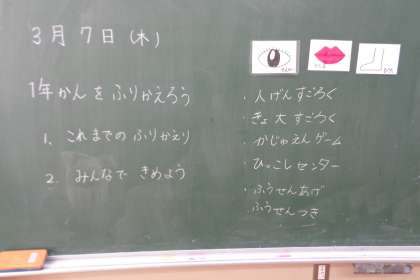 3月7日(木)
1年かんをふりかえろう
1. これまでのふりかえり
2. みんなで きめよう
・人げんすごろく
・きょ大すごろく
・かじゅえんゲーム
・ひっこしセンター
・ふうせんあげ
・ふうせんつき